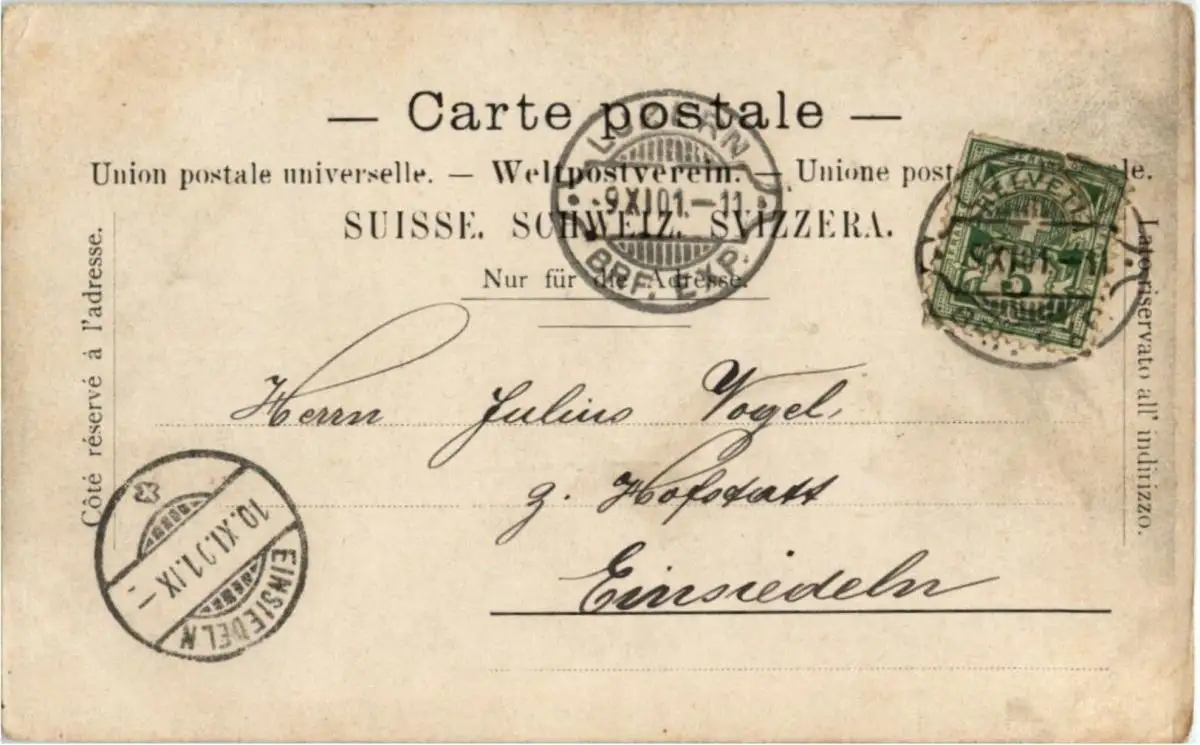 — Carte postale —
Union postale universelle. — Weltpostverein. — Unione
SUISSE. SCHWEIZ. SVIZZERA.
Nur für die Adresse.
LUZERN
-9.XI.01.-11
BRF. EXP.
HELVETIA
5
9.XI.01.-11
Côté réservé à l'adresse.
Lato riservato all' indirizzo.
Herrn Julius Vogel,
z. Hofstatt
Einsiedeln
10.XI.01.IX-
EINSIEDELN